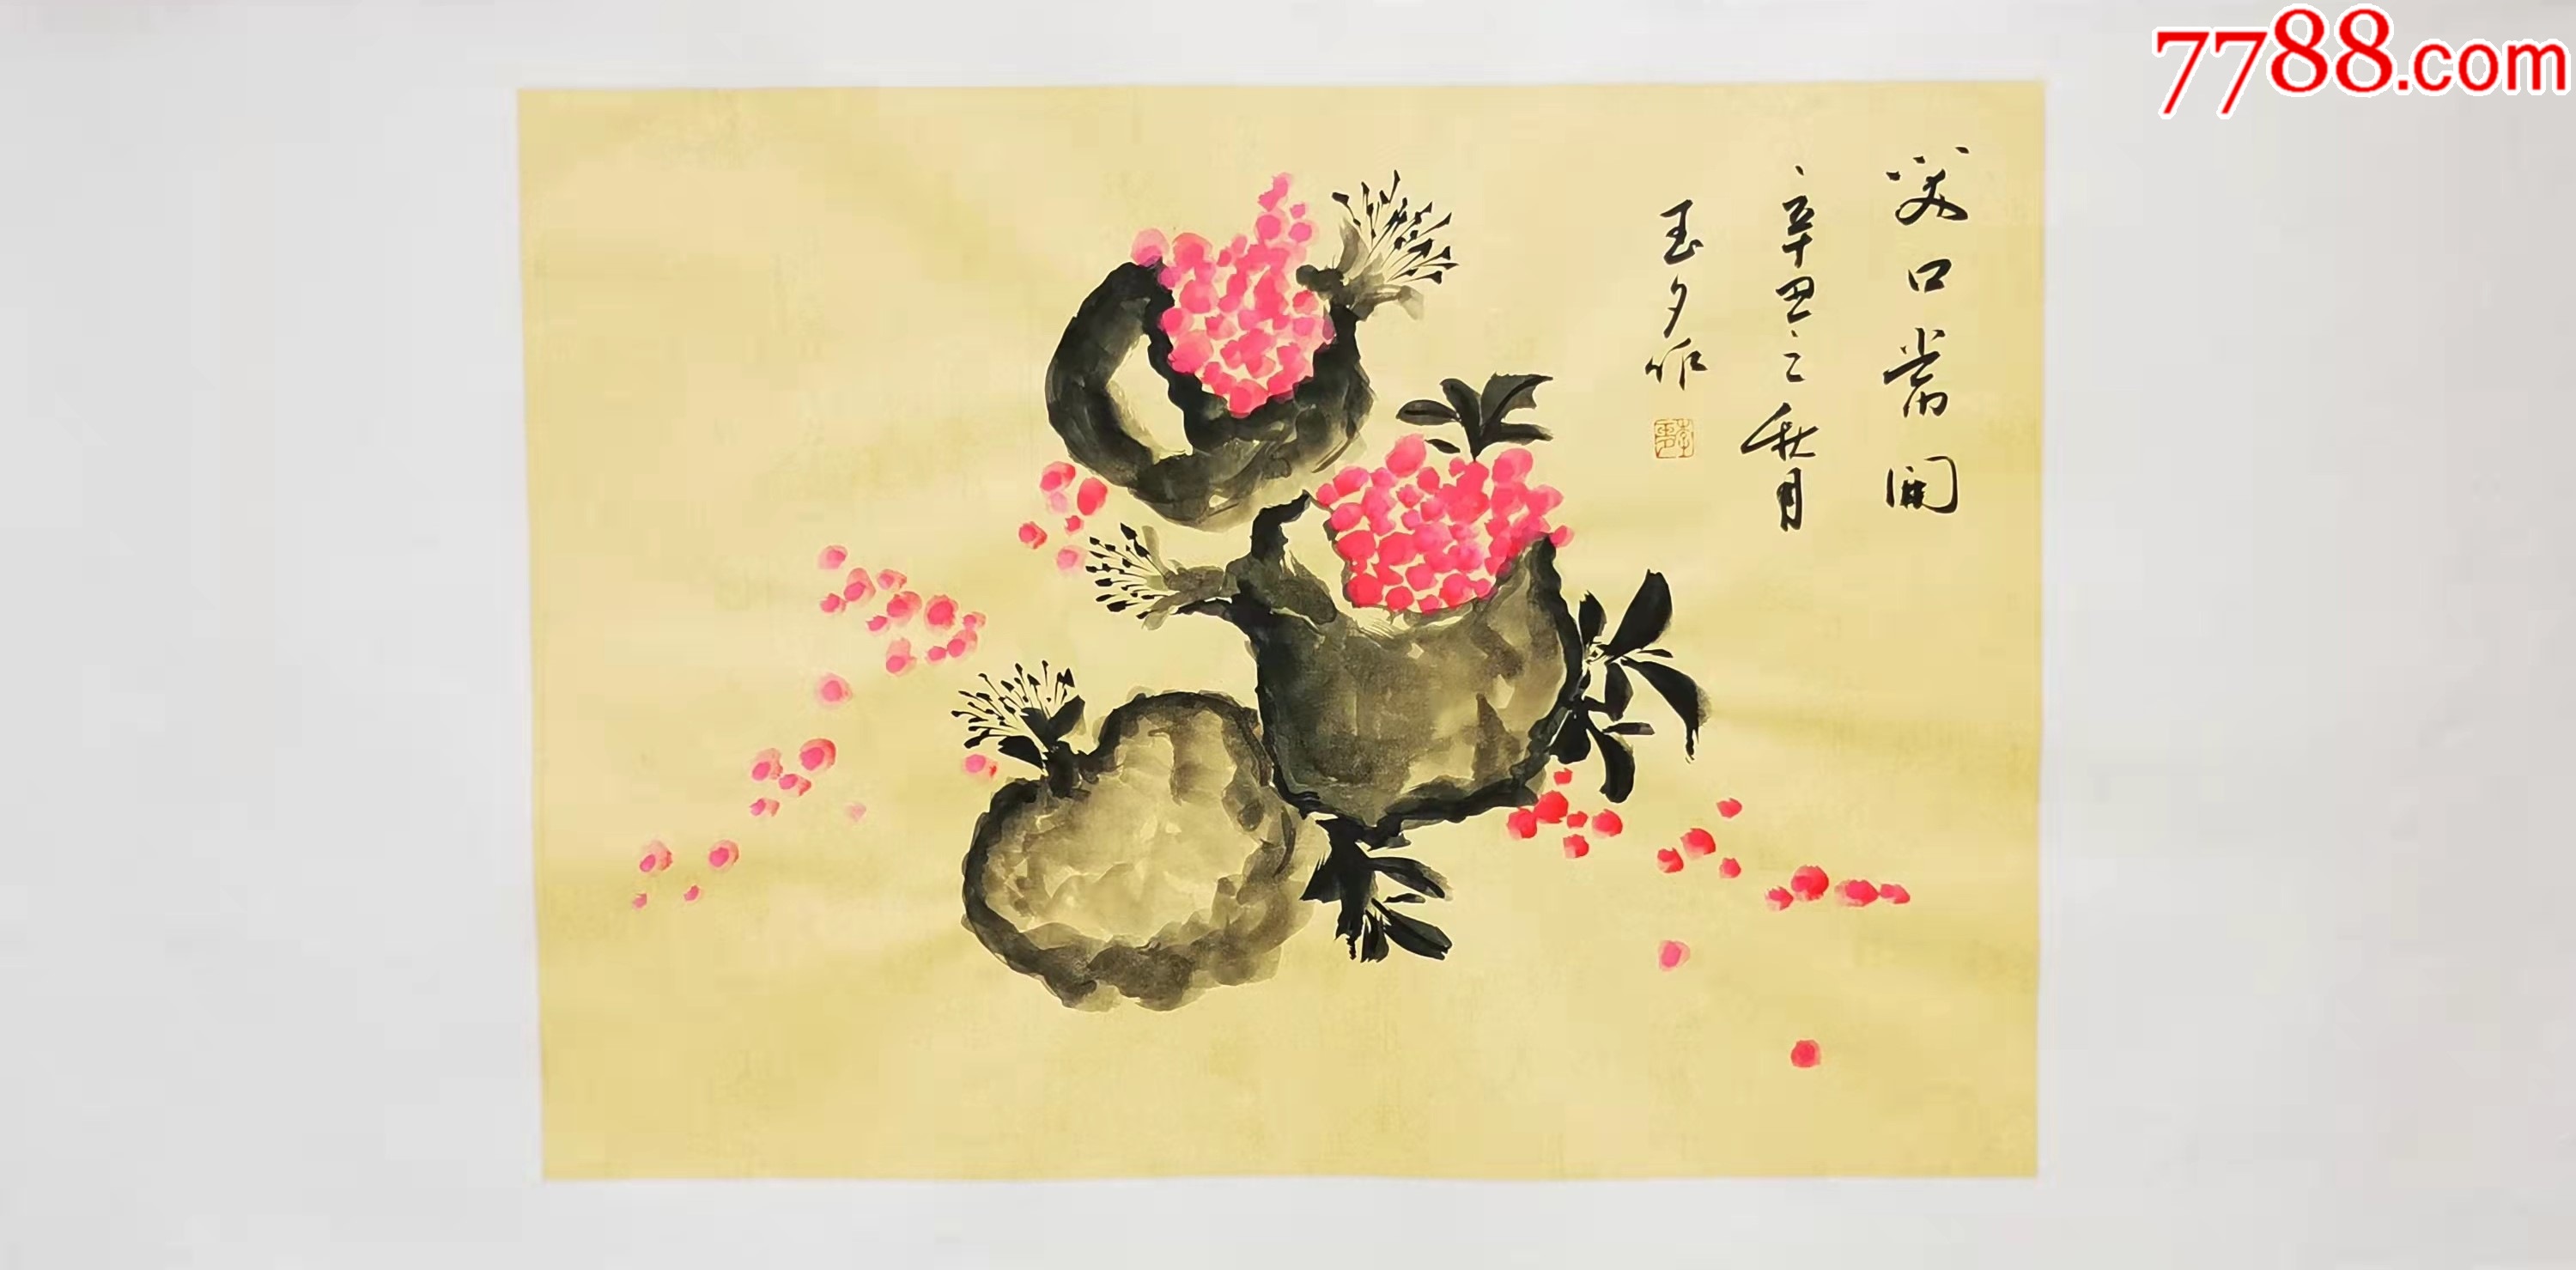 7788.com
笑口常開
辛丑之秋月
玉夕作